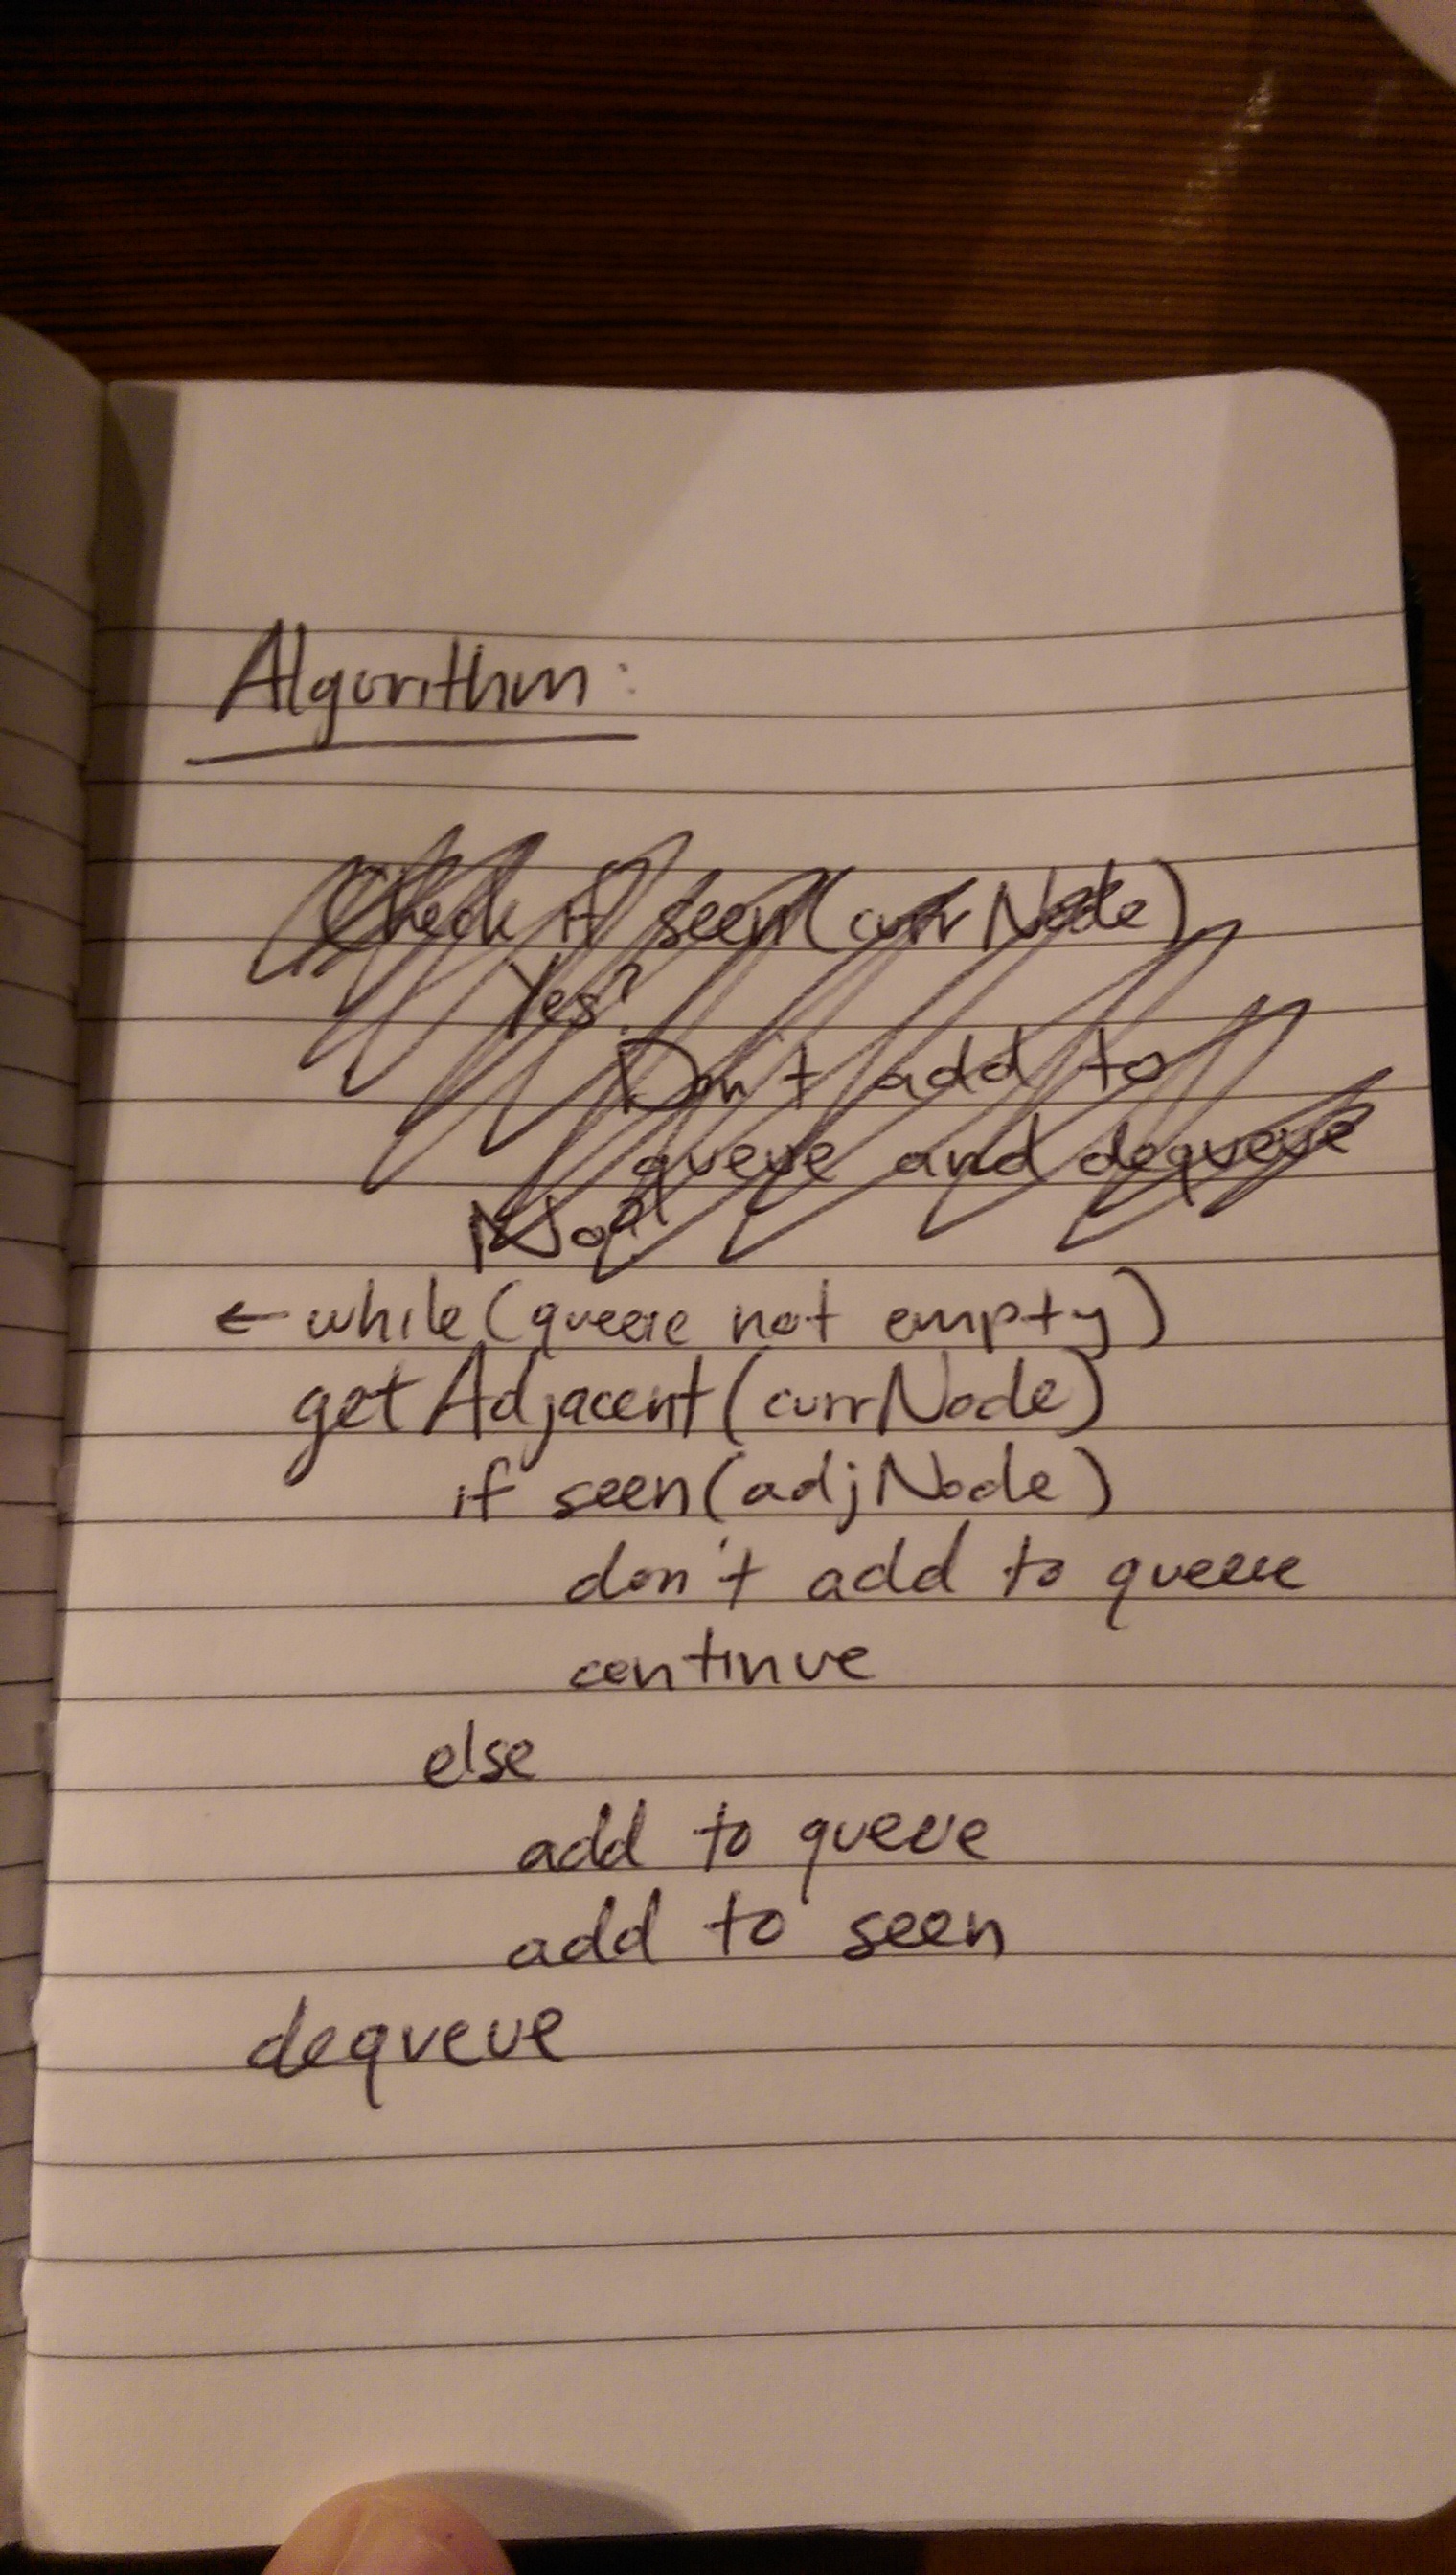 Algorithm:
Check if seen(currNode)
Yes?
Don't add to
queue and dequeue
No?
← while(queue not empty)
getAdjacent(currNode)
if seen(adjNode)
don't add to queue
continue
else
add to queue
add to seen
dequeue